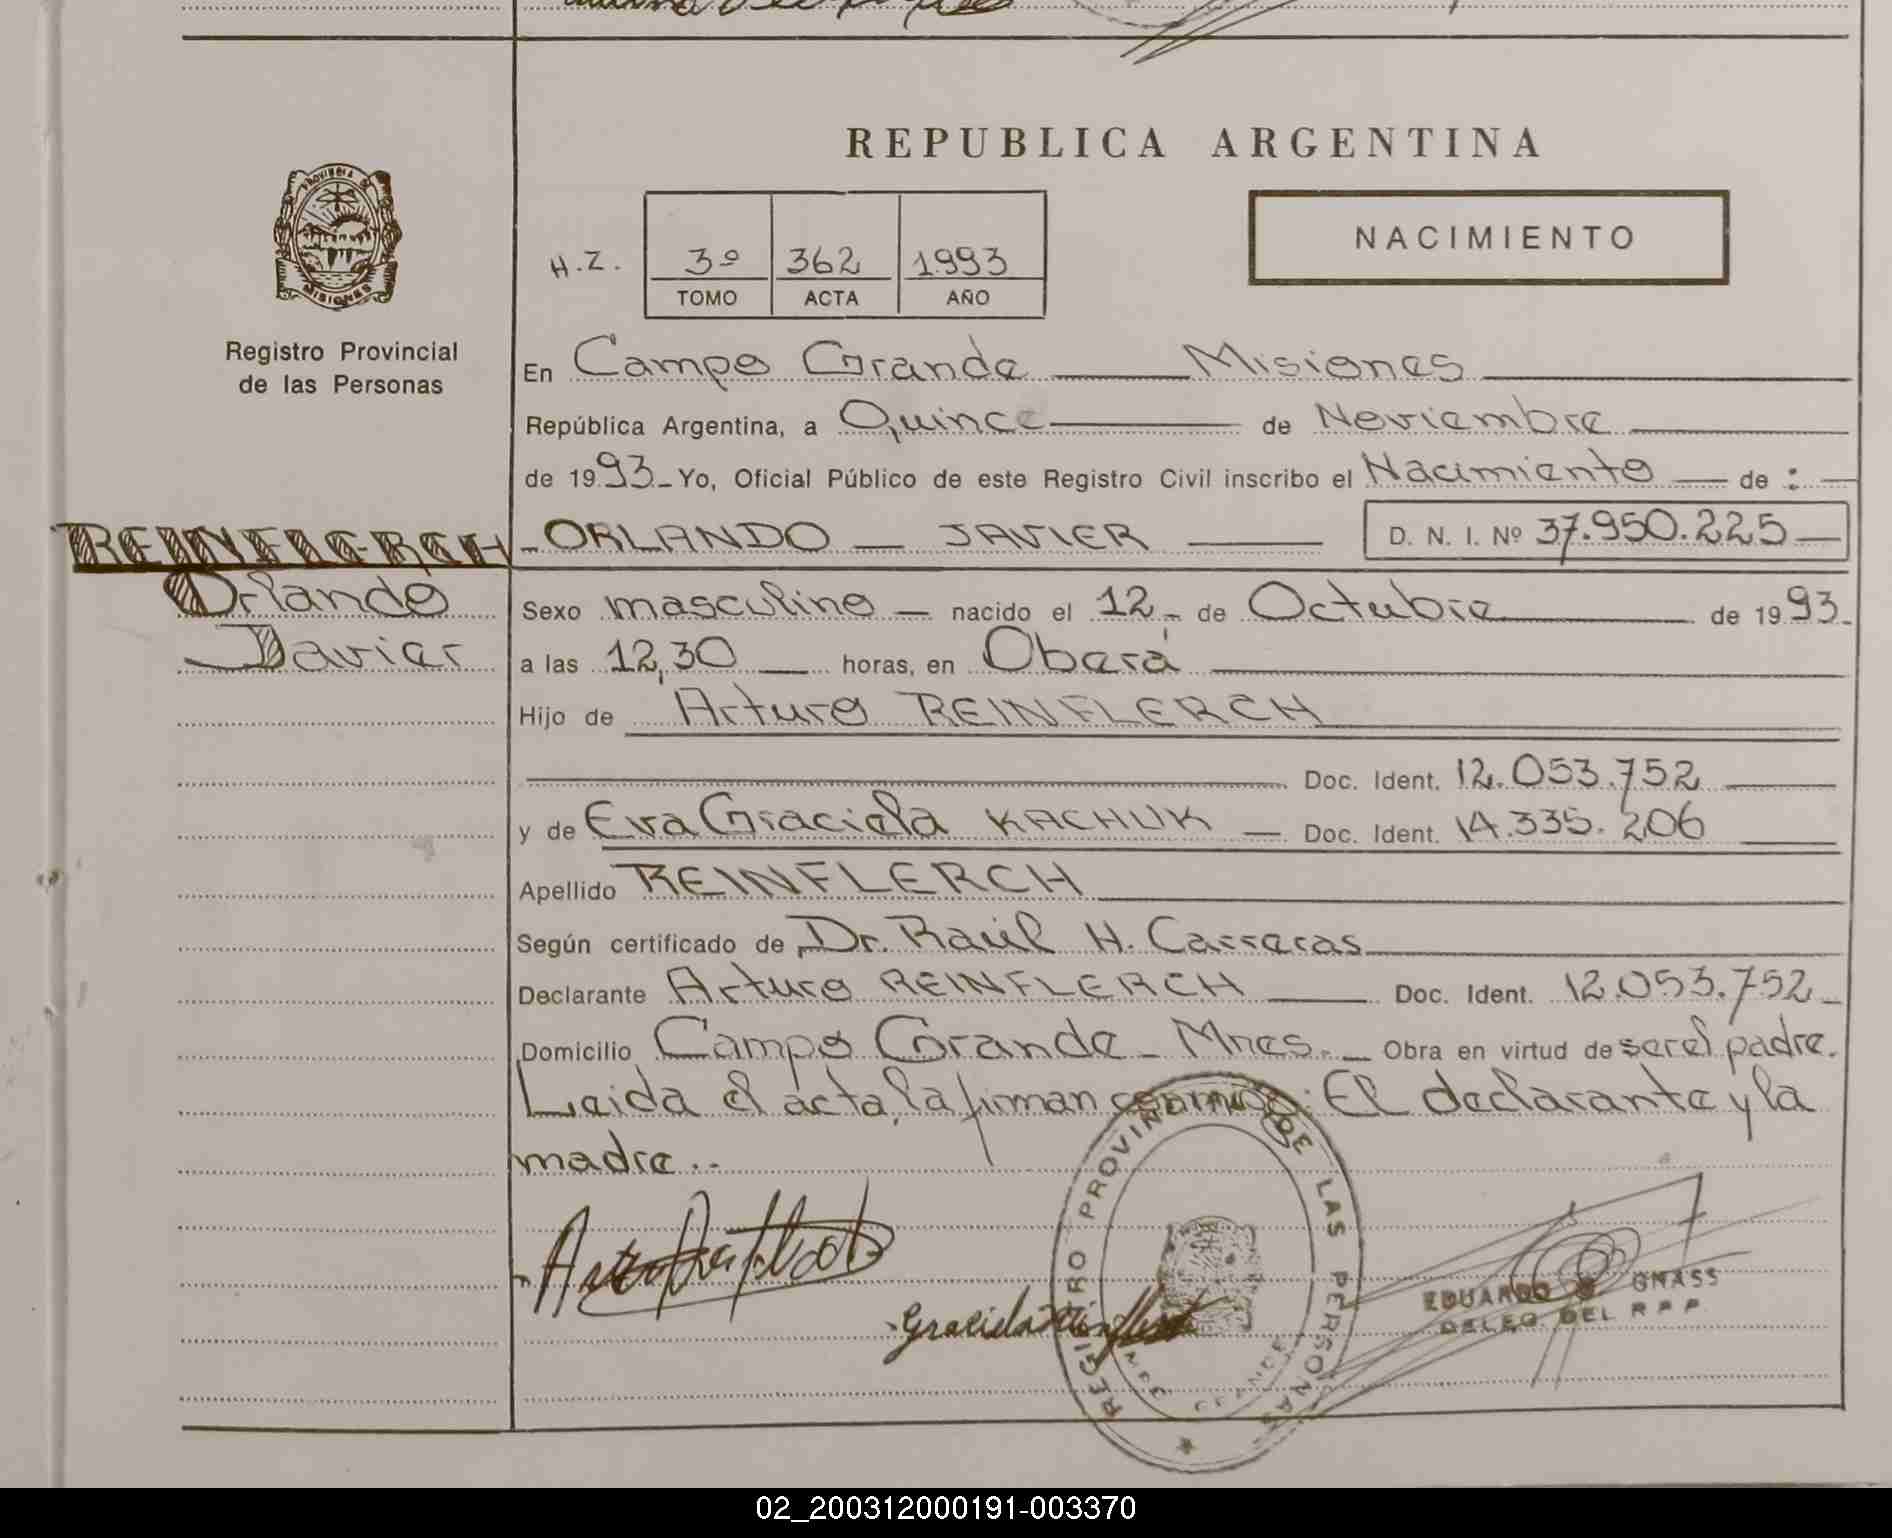 REPUBLICA ARGENTINA
PROVINCIA DE
MISIONES
Registro Provincial
de las Personas
NACIMIENTO
H.Z. 3º 362 1993
TOMO ACTA AÑO
En Campo Grande Misiones
República Argentina, a Quince de Noviembre
de 1993 Yo, Oficial Público de este Registro Civil inscribo el Nacimiento de :
REINFLERCH ORLANDO JAVIER D. N. I. Nº 37.950.225
Orlando
Javier
Sexo masculino nacido el 12 de Octubre de 1993
a las 12,30 horas, en Oberá
Hijo de Arturo REINFLERCH
Doc. Ident. 12.053.752
y de Eva Graciela KACHUK Doc. Ident. 14.335.206
Apellido REINFLERCH
Según certificado de Dr. Raúl H. Carreras
Declarante Arturo REINFLERCH Doc. Ident. 12.053.752
Domicilio Campo Grande - Mnes. Obra en virtud de ser el padre.
Leida el acta, la firman conmigo: El declarante y la
madre..
REGISTRO PROVINCIAL DE LAS PERSONAS
Graciela
EDUARDO GNASS
DELEG. DEL R P P
02_200312000191-003370